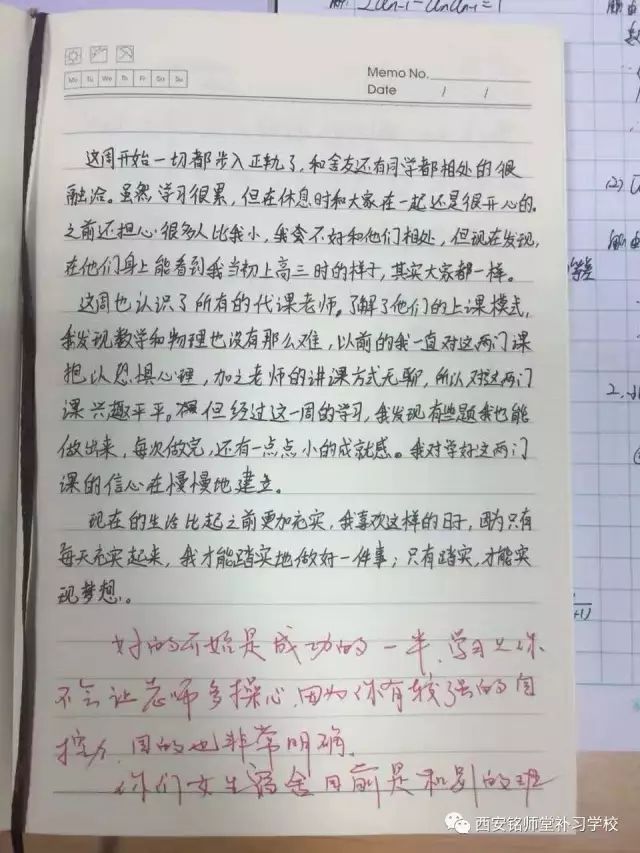 解: 2an-1-anan-1=1
Memo No.
Mo Tu We Th Fr Sa Su
Date / /
这周开始一切都步入正轨了，和舍友还有同学都相处的很
融洽。虽然学习很累，但在休息时和大家在一起还是很开心的。
之前还担心很多人比我小，我会不好和他们相处，但现在发现，
在他们身上能看到我当初上高三时的样子，其实大家都一样。
这周也认识了所有的代课老师。了解了他们的上课模式，
我发现数学和物理也没有那么难，以前的我一直对这两门课
抱以恐惧心理，加之老师的讲课方式无聊，所以对这两门
课兴趣平平。但经过这一周的学习，我发现有些题我也能
做出来，每次做完，还有一点点小的成就感。我对学好这两门
课的信心在慢慢地建立。
现在的生活比起之前更加充实，我喜欢这样的日子，因为只有
每天充实起来，我才能踏实地做好一件事；只有踏实，才能实
现梦想。
好的开始是成功的一半，学习上你
不会让老师多操心，因为你有较强的自
控力，目的也非常明确。
你们女生宿舍目前是和别的班
西安铭师堂补习学校